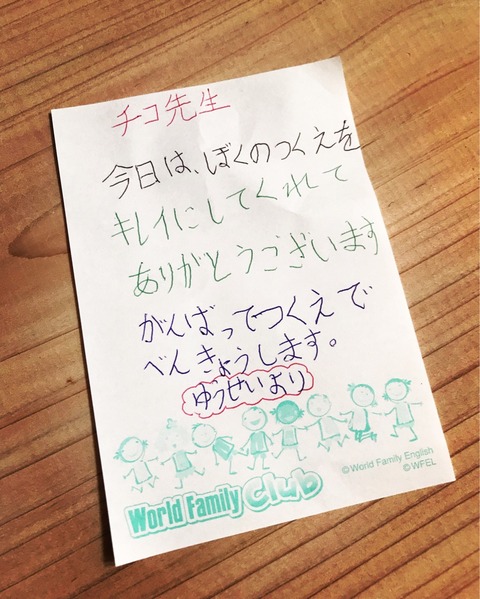 チコ先生
今日は、ぼくのつくえを
キレイにしてくれて
ありがとうございます
がんばってつくえで
べんきょうします。
ゆうせいより
©World Family English
©WFEL
World Family Club